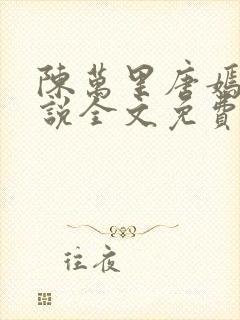 陳萬里唐嫣
說全文免費
往夜